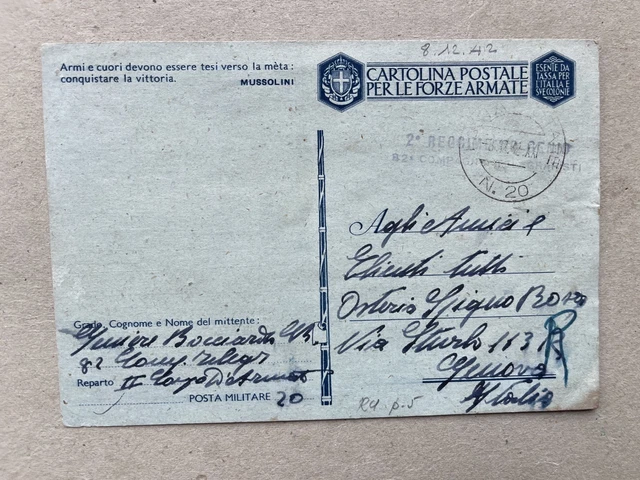 8.12.42
Armi e cuori devono essere tesi verso la mèta :
conquistare la vittoria.
MUSSOLINI
CARTOLINA POSTALE
PER LE FORZE ARMATE
ESENTE DA
TASSA PER
L'ITALIA E
SUE COLONIE
2° REGGIMENTO GENIO
82ª COMPAGNIA
N. 20
Agli Amici e
Clienti tutti
Osteria Gigno Rosa
Via Sturla 113 R
Genova
Italia
R
Grado, Cognome e Nome del mittente :
Geniere Bocciardo
82 Comp. Telegr
Reparto II Corpo D'Armata
POSTA MILITARE 20
R4 p.5